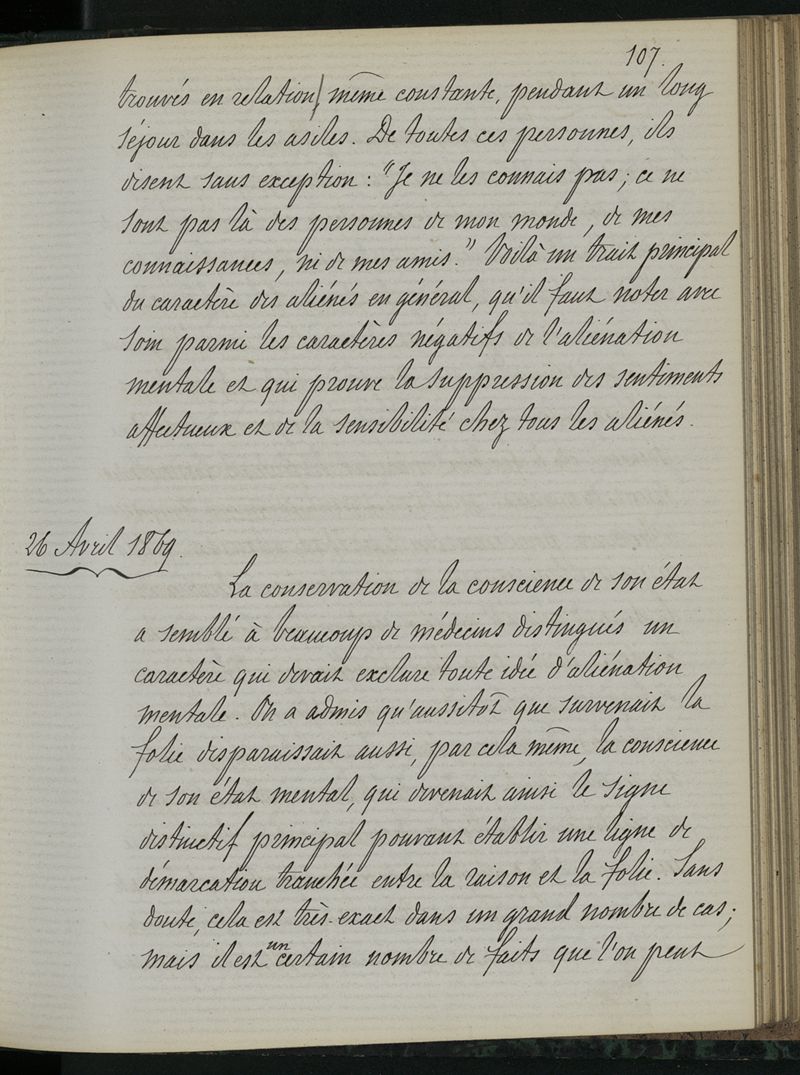 107.
trouvés en relation, même constante, pendant un long
séjour dans les asiles. De toutes ces personnes, ils
disent sans exception : "Je ne les connais pas ; ce ne
sont pas là des personnes de mon monde, de mes
connaissances, ni de mes amis." Voilà un trait principal
du caractère des aliénés en général, qu'il faut noter avec
soin parmi les caractères négatifs de l'aliénation
mentale et qui prouve la suppression des sentiments
affectueux et de la sensibilité chez tous les aliénés.
26 Avril 1869.
La conservation de la conscience de son état
a semblé à beaucoup de médecins distingués un
caractère qui devait exclure toute idée d'aliénation
mentale. On a admis qu'aussitôt que survenait la
folie disparaissait aussi, par cela même, la conscience
de son état mental, qui devenait ainsi le signe
distinctif principal pouvant établir une ligne de
démarcation tranchée entre la raison et la folie. Sans
doute, cela est très-exact dans un grand nombre de cas ;
mais il est un certain nombre de faits que l'on peut